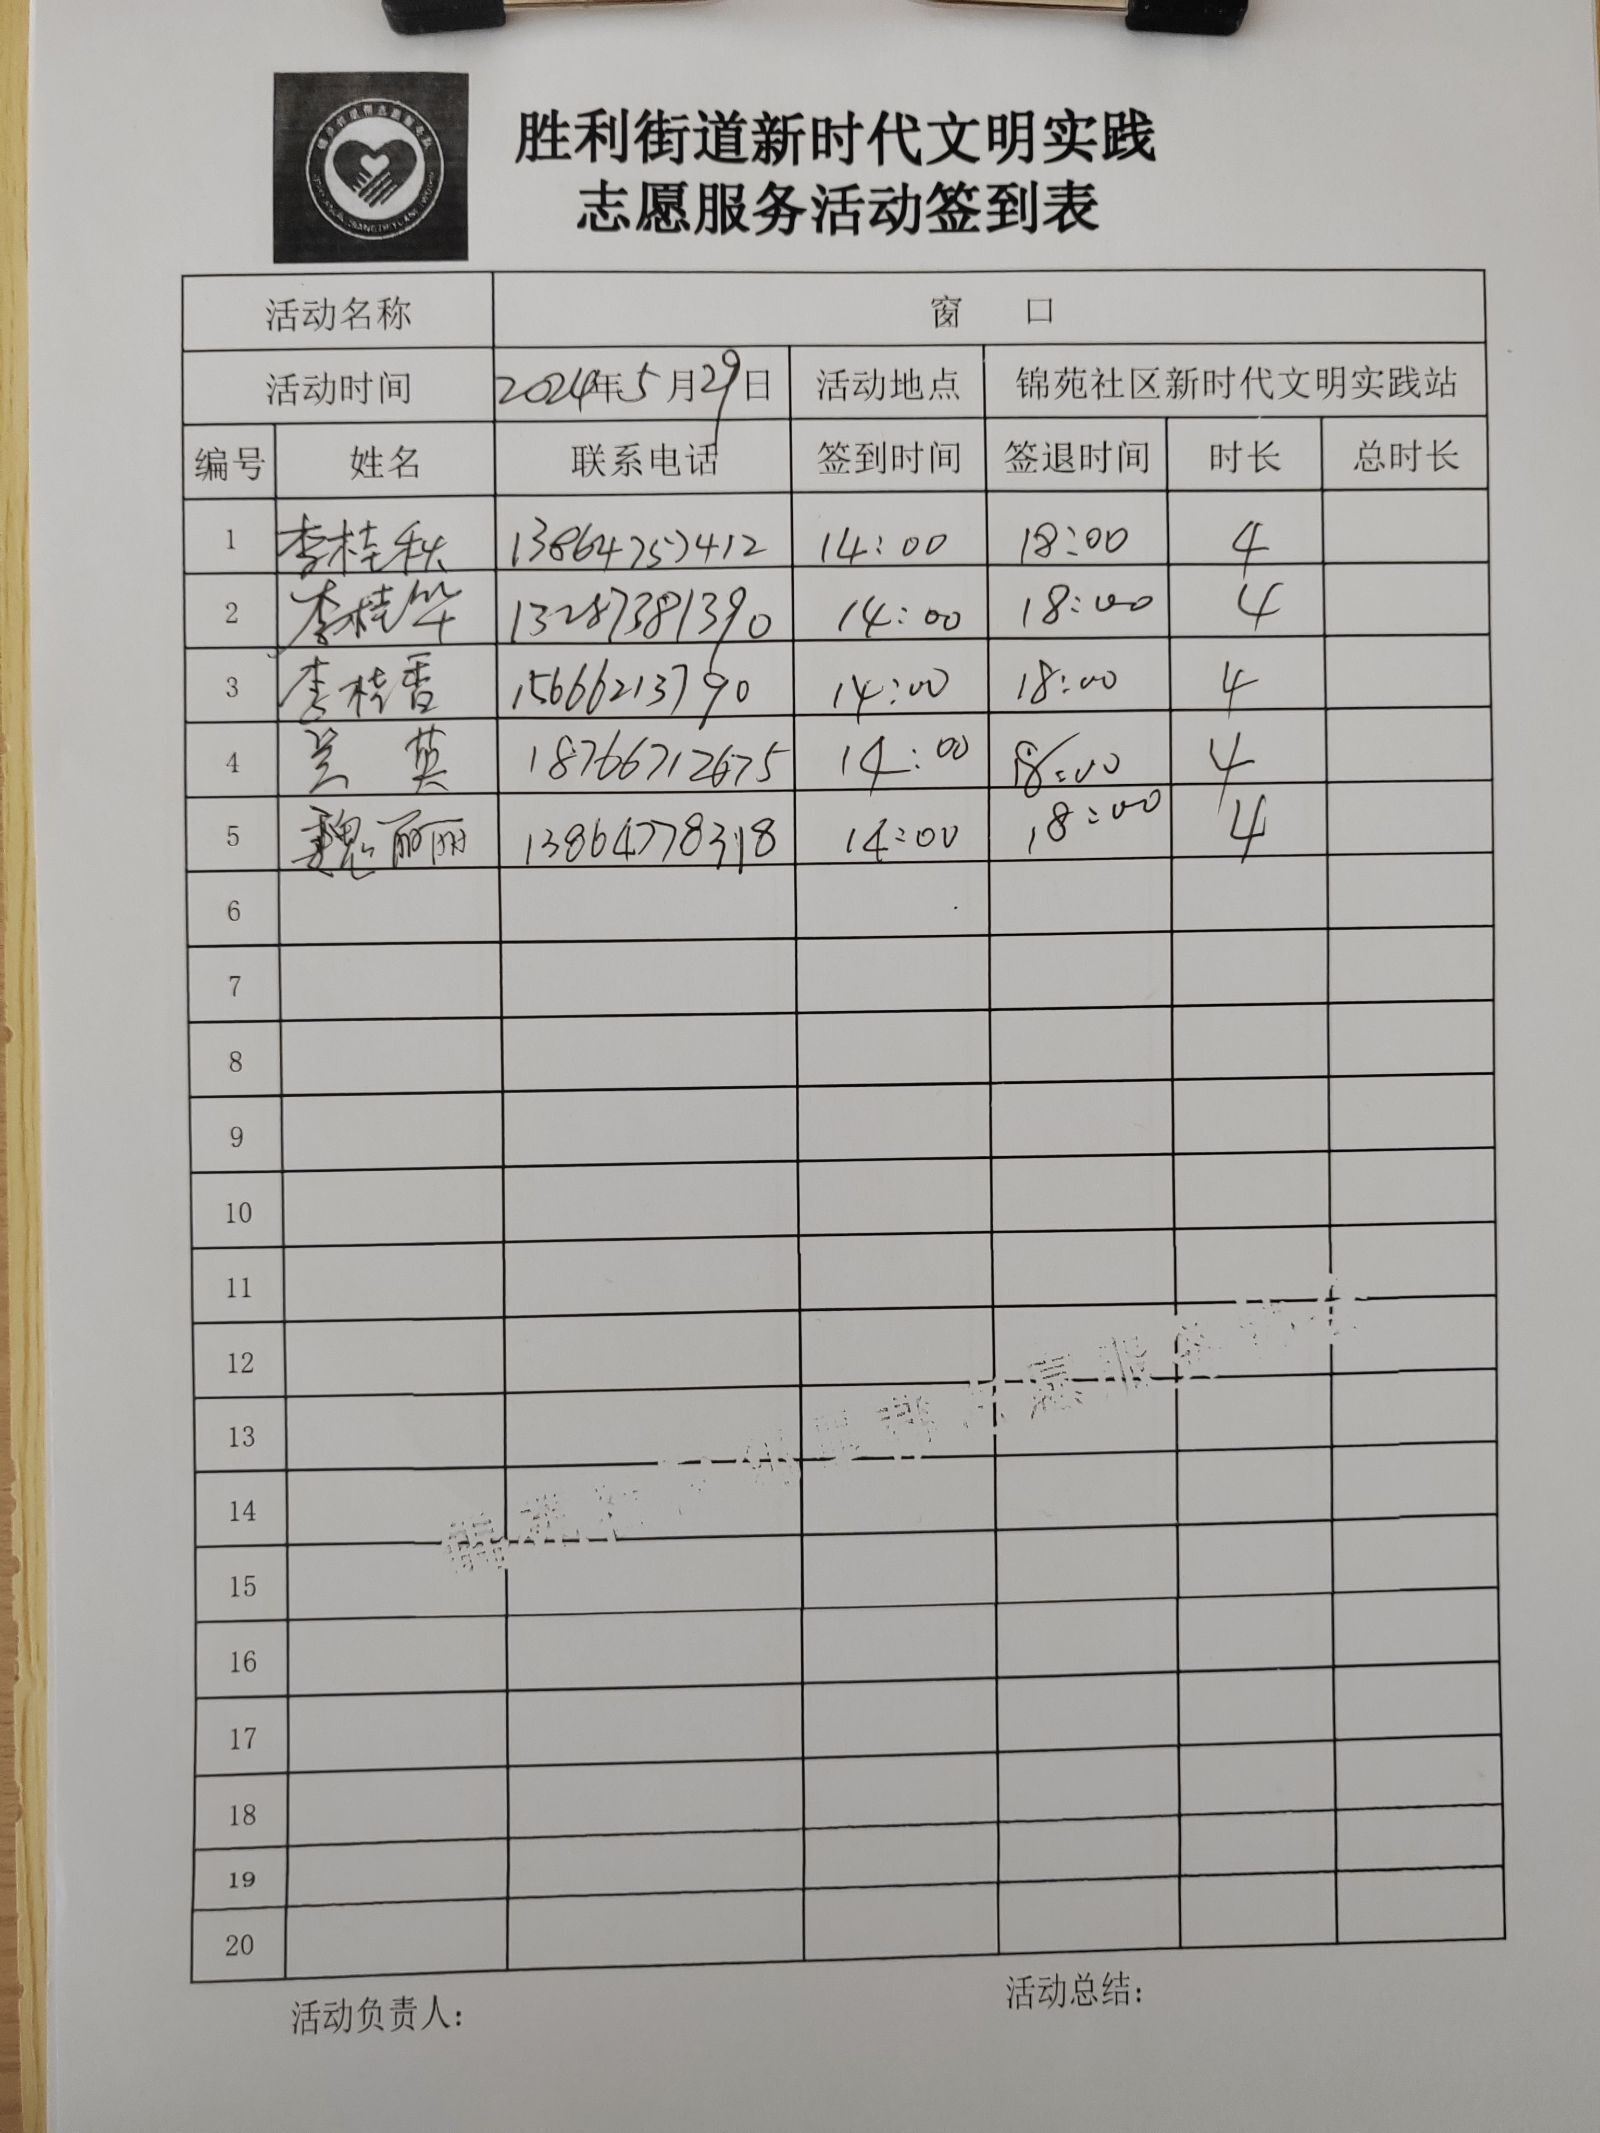 胜利街道新时代文明实践
志愿服务活动签到表
活动名称 窗 口
活动时间 2024年5月29日 活动地点 锦苑社区新时代文明实践站
编号 姓名 联系电话 签到时间 签退时间 时长 总时长
1 李桂秋 13864757412 14:00 18:00 4
2 李桂华 13287381390 14:00 18:00 4
3 李桂香 15666213790 14:00 18:00 4
4 兰英 18766712675 14:00 18:00 4
5 魏丽丽 13864778318 14:00 18:00 4
6
7
8
9
10
11
12
13
14
15
16
17
18
19
20
活动负责人: 活动总结: